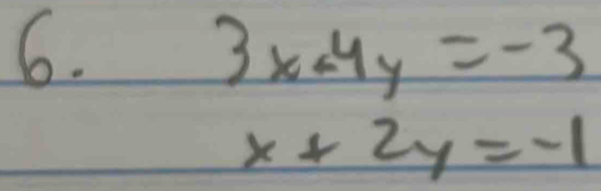 6. 3x+4y=-3
x+2y=-1